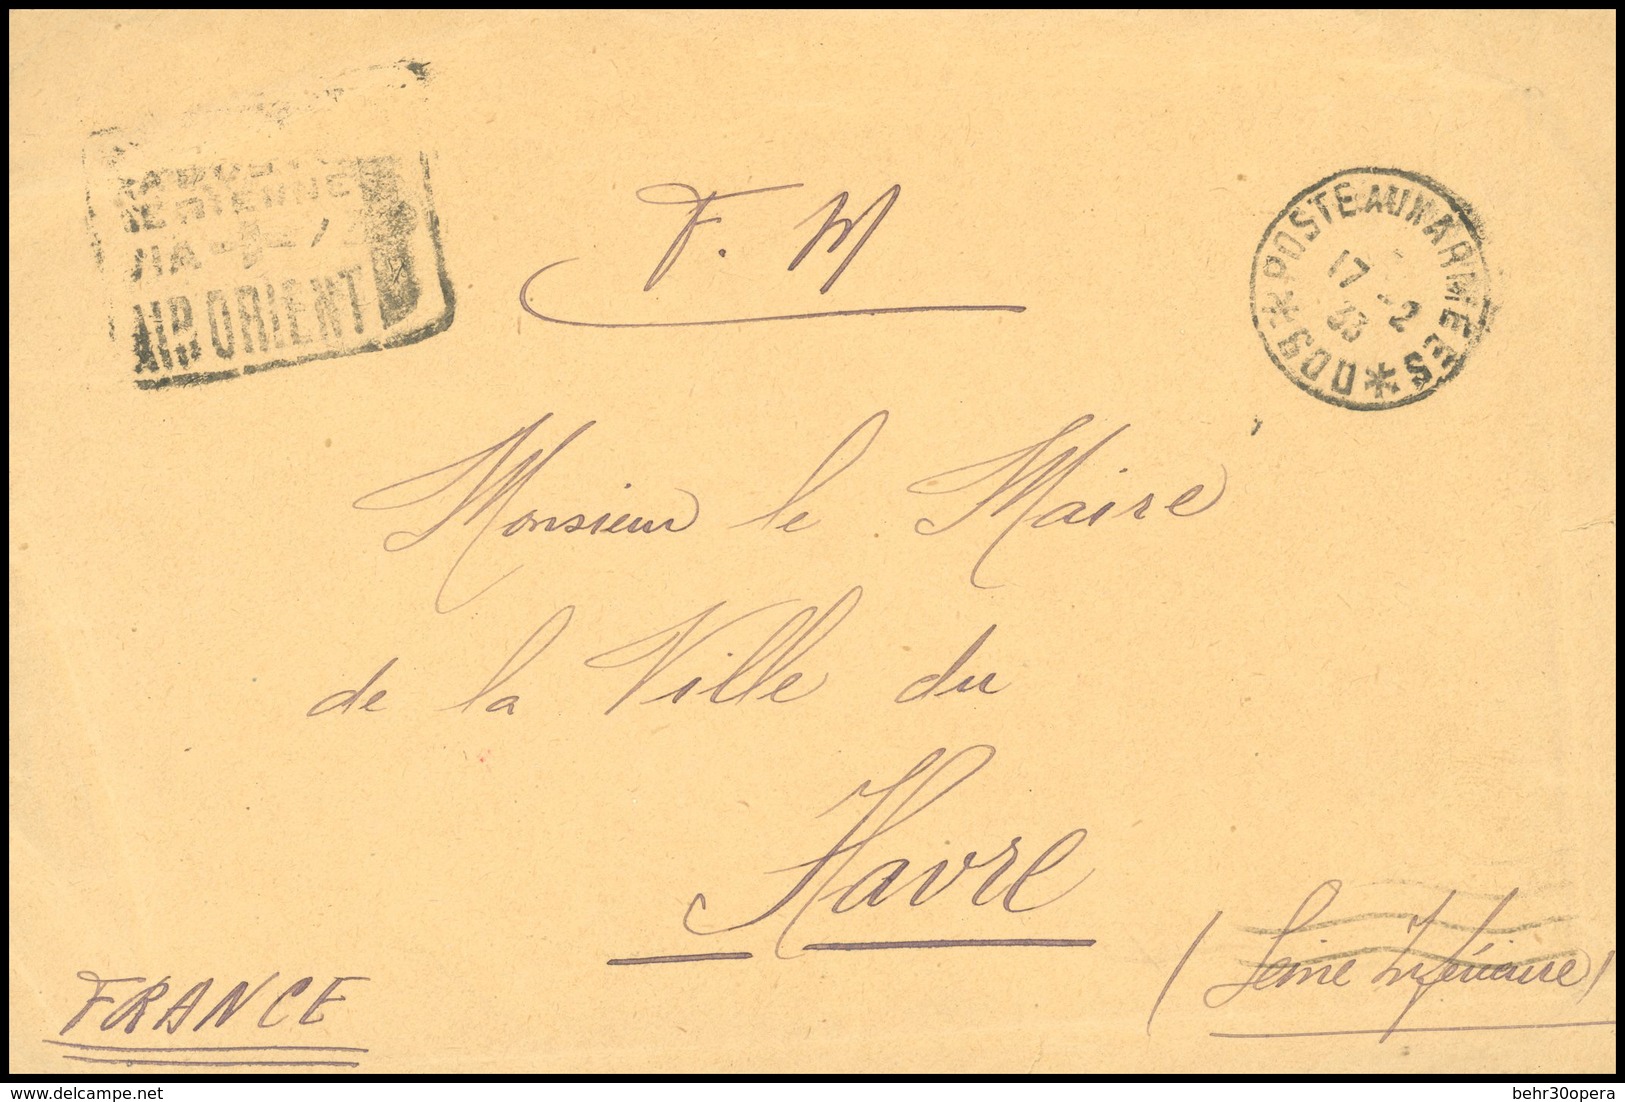 AERIENNE
VIA
AIR ORIENT
F. M
*POSTE AUX ARMÉES*
17 -2
33
600
Monsieur le Maire
de la Ville du
Havre
(Seine Inférieure)
FRANCE
delcampe.net
behr30opera